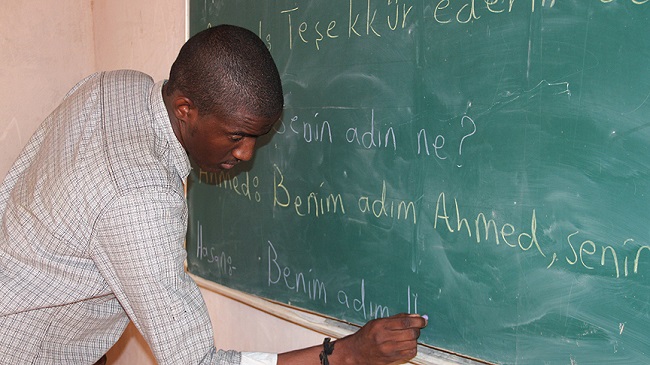 Teşekkür ederim
Senin adın ne?
Ahmed: Benim adım Ahmed, senin
Hasan: Benim adım H